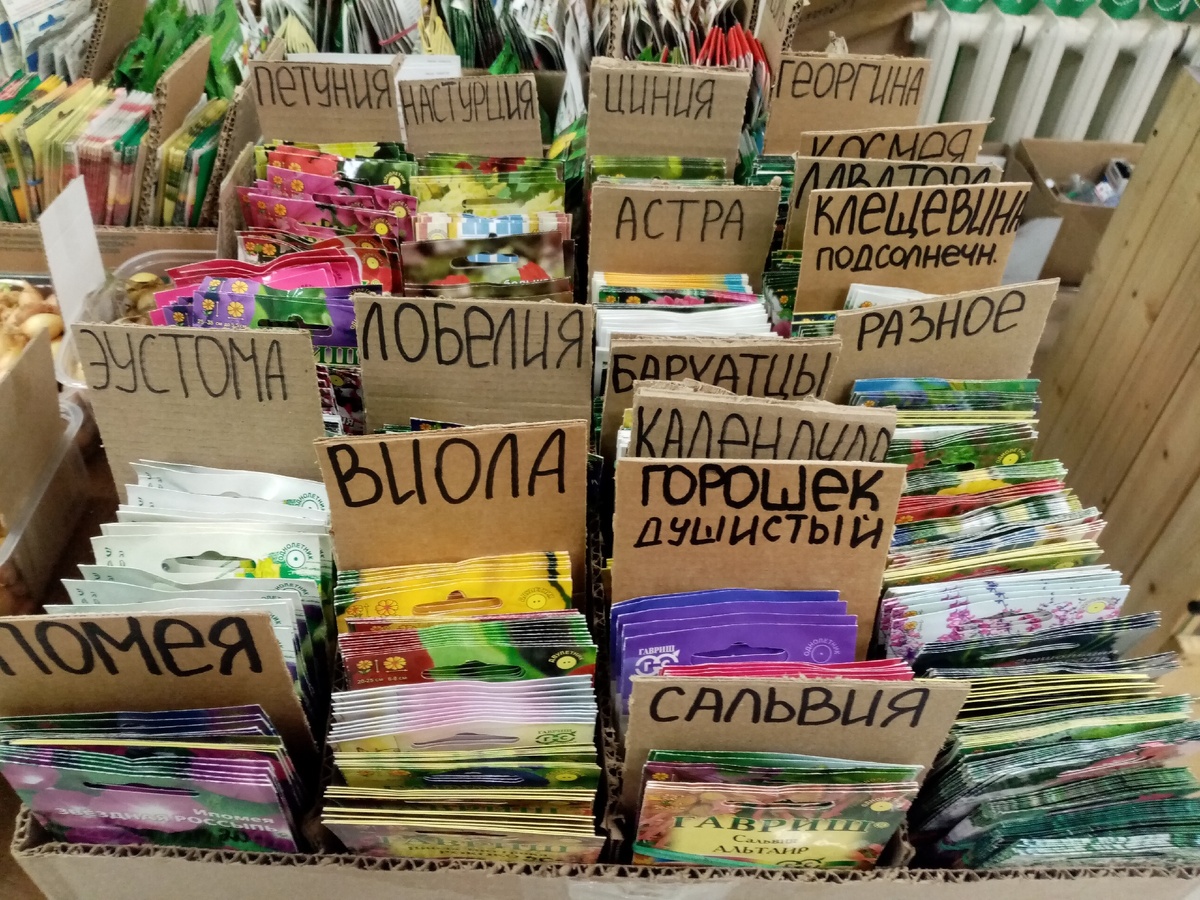 ПЕТУНИЯ
НАСТУРЦИЯ
ЦИНИЯ
ГЕОРГИНА
КОСМЕЯ
ЛАВАТЕРА
КЛЕЩЕВИНА
ПОДСОЛНЕЧН.
АСТРА
РАЗНОЕ
ЭУСТОМА
ЛОБЕЛИЯ
БАРХАТЦЫ
КАЛЕНДУЛА
ВИОЛА
ГОРОШЕК
ДУШИСТЫЙ
ОДНОЛЕТНИК
ДВУЛЕТНИК
ГАВРИШ
ОДНОЛЕТНИК
ПОМЕЯ
САЛЬВИЯ
Ипомея
ЗВЕЗДНАЯ РОССЫПЬ
ГАВРИШ
Сальвия
АЛЬТАИР